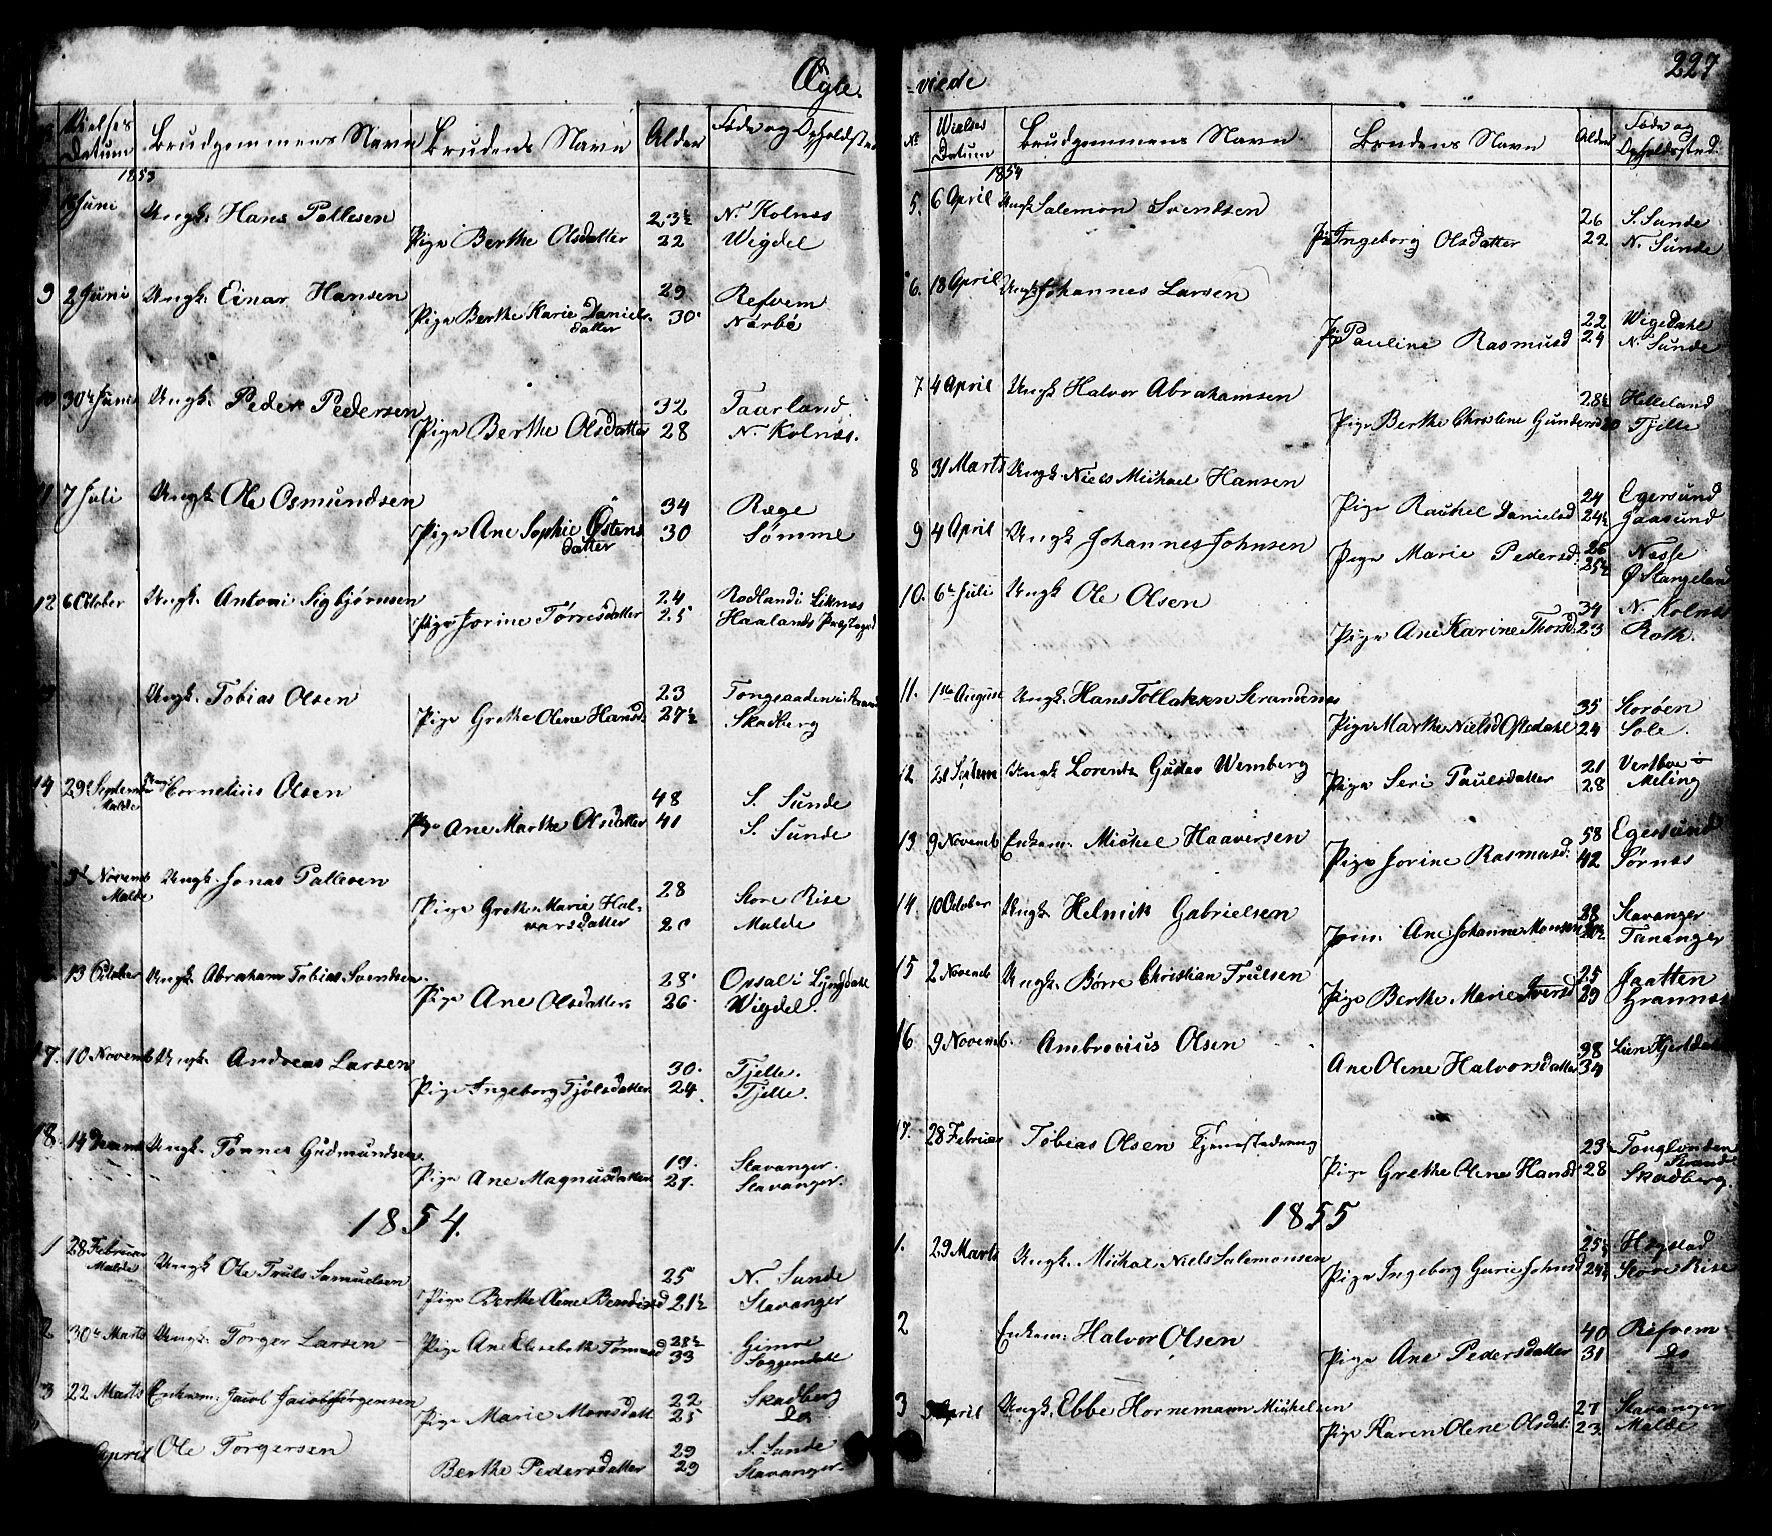 Ægte.
Vielses Datum Brudgommens Navn Brudens Navn Alder Føde og Opholdsted
1853
Juni Ungk. Hans Pallesen 23½ N. Kolnæs
Pige Berthe Olsdatter 22 Wigdel
9 2 Juni Ungk. Einar Hansen 29 Refvem
Pige Berthe Karie Daniels- 30 Nærbø
datter
30te Juni Ungk. Peder Pedersen 32 Taarland
Pige Berthe Olsdatter 28 N. Kolnæs.
7 Juli Ungk Ole Osmundsen 34 Ræge
Pige Ane Sophie Østens 30 Sømme
datter
12 6 October Ungk. Antoni Sigbjørnsen 24 Rodland i Liknæs
Pige Jorine Tørresdatter 25 Haalands
Ungk. Tobias Olsen 23
Pige Grethe Olene Hansd. 27½ Skadberg
14 29 September Ungk Cornelius Olsen 48 S. Sunde
Malde
Pige Ane Marthe Olsdatter 41 S. Sunde
3d Novemb Ungk. Jonas Pallesen 28 Store Rise
Malde
Pige Grethe Marie Hal-
varsdatter Malde
13 October Ungk. Abraham Tobias Svendsen 28 Opsal i Lyngdahl
Pige Ane Olsdatter 26 Wigdel.
17. 10 Novemb Ungk. Andreas Larsen 30. Tjelle.
Pige Ingeborg Tjølsdatter 24. Tjelle.
18. 14 Ungk. Tønnes Gudmundsen 19. Stavanger.
Pige Ane Magnusdatter 27. Stavanger.
1854.
1 28 Februar Ungk Ole Truls Samuelsen 25 N. Sunde
Malde
Pige Berthe Olene Bendixd 21½ Stavanger
2 30te Marts Ungk. Torger Larsen 28½ Gimre
Pige Ane Elisabeth Tønnesd 33 Soggendahl
3 22 Marts Enkem. Jacob Jacob Jørgensen 22 Skadberg
Pige Marie Monsdatt 25 Do
April Ole Torgersen 29 S. Sunde
Berthe Pedersdatter 29 Stavanger.
-viede 227
No Wielses Datum Brudgommens Navn Brudens Navn Alder Føde og Opholdssted.
1854
5. 6 April Ungk Salemon Svendsen 26 S. Sunde
Pig Ingeborg Olsdatter 22 N. Sunde
6. 18 April Ungk Johannes Larsen 22 Wigedahl
Pig Pauline Rasmusd 24 N. Sunde
7. 4 April Ungk Halvor Abrahamsen 28½ Helleland
Pige Berthe Christine Gundersd Tjelle
8 31 Marts Ungk. Niels Michael Hansen 24 Egersund
Pige Rachel Danielsd 24½ Gaasund
9 4 April Ungk Johannes Johnsen 26 Næsse
Pige Marie Pedersd. 25½ Ø Stangeland
10. 6te Juli Ungk Ole Olsen 34 N. Kolnæs
Pige Ane Karine Thorsd. 23 Roth.
11. 1ste August Ungk. Hans Tollaksen Strandenæs 35 Storøen
Pige Marthe Nielsd Oftedahl 24 Sole.
12 21 Septem Ungk Lorents Gustav Wemberg 21 Vertboe
Pige Seri Paulsdatter 28 Meling
13 9 Novemb Enkem. Michel Haaversen 58 Egersund
Pige Jorine Rasmusd. 42 Sørnæs
14. 10 October Ungk. Helmik Gabrielsen 28 Stavanger
Ane Johanne Monsen Tananger
15 2 Novemb Ungk. Børre Christian Trulsen 25 Jaatten
Pige Berthe Marie Iversd 29 Grannæs
16 9 Novemb. Ambrosius Olsen 38 Lien Hjertdahl
Ane Olene Halvorsdatter 34
17. 28 Februar Tobias Olsen 23
Strand
Pige Grethe Olene Hansd 28 Skadberg.
1855
1. 29 Marts Ungk. Michal Niels Salemonsen 25½ Høgstad
Pige Ingeborg Gurie Johnsd 24½ Store Rise
2 Enkem. Halvor Olsen 40 Refvem
Pige Ane Pedersdatter 31 Do
3 April Ungk. Ebbe Hornemann Mickelsen 27 Stavanger
Pige Karen Olene Olsdat. 23. Malde